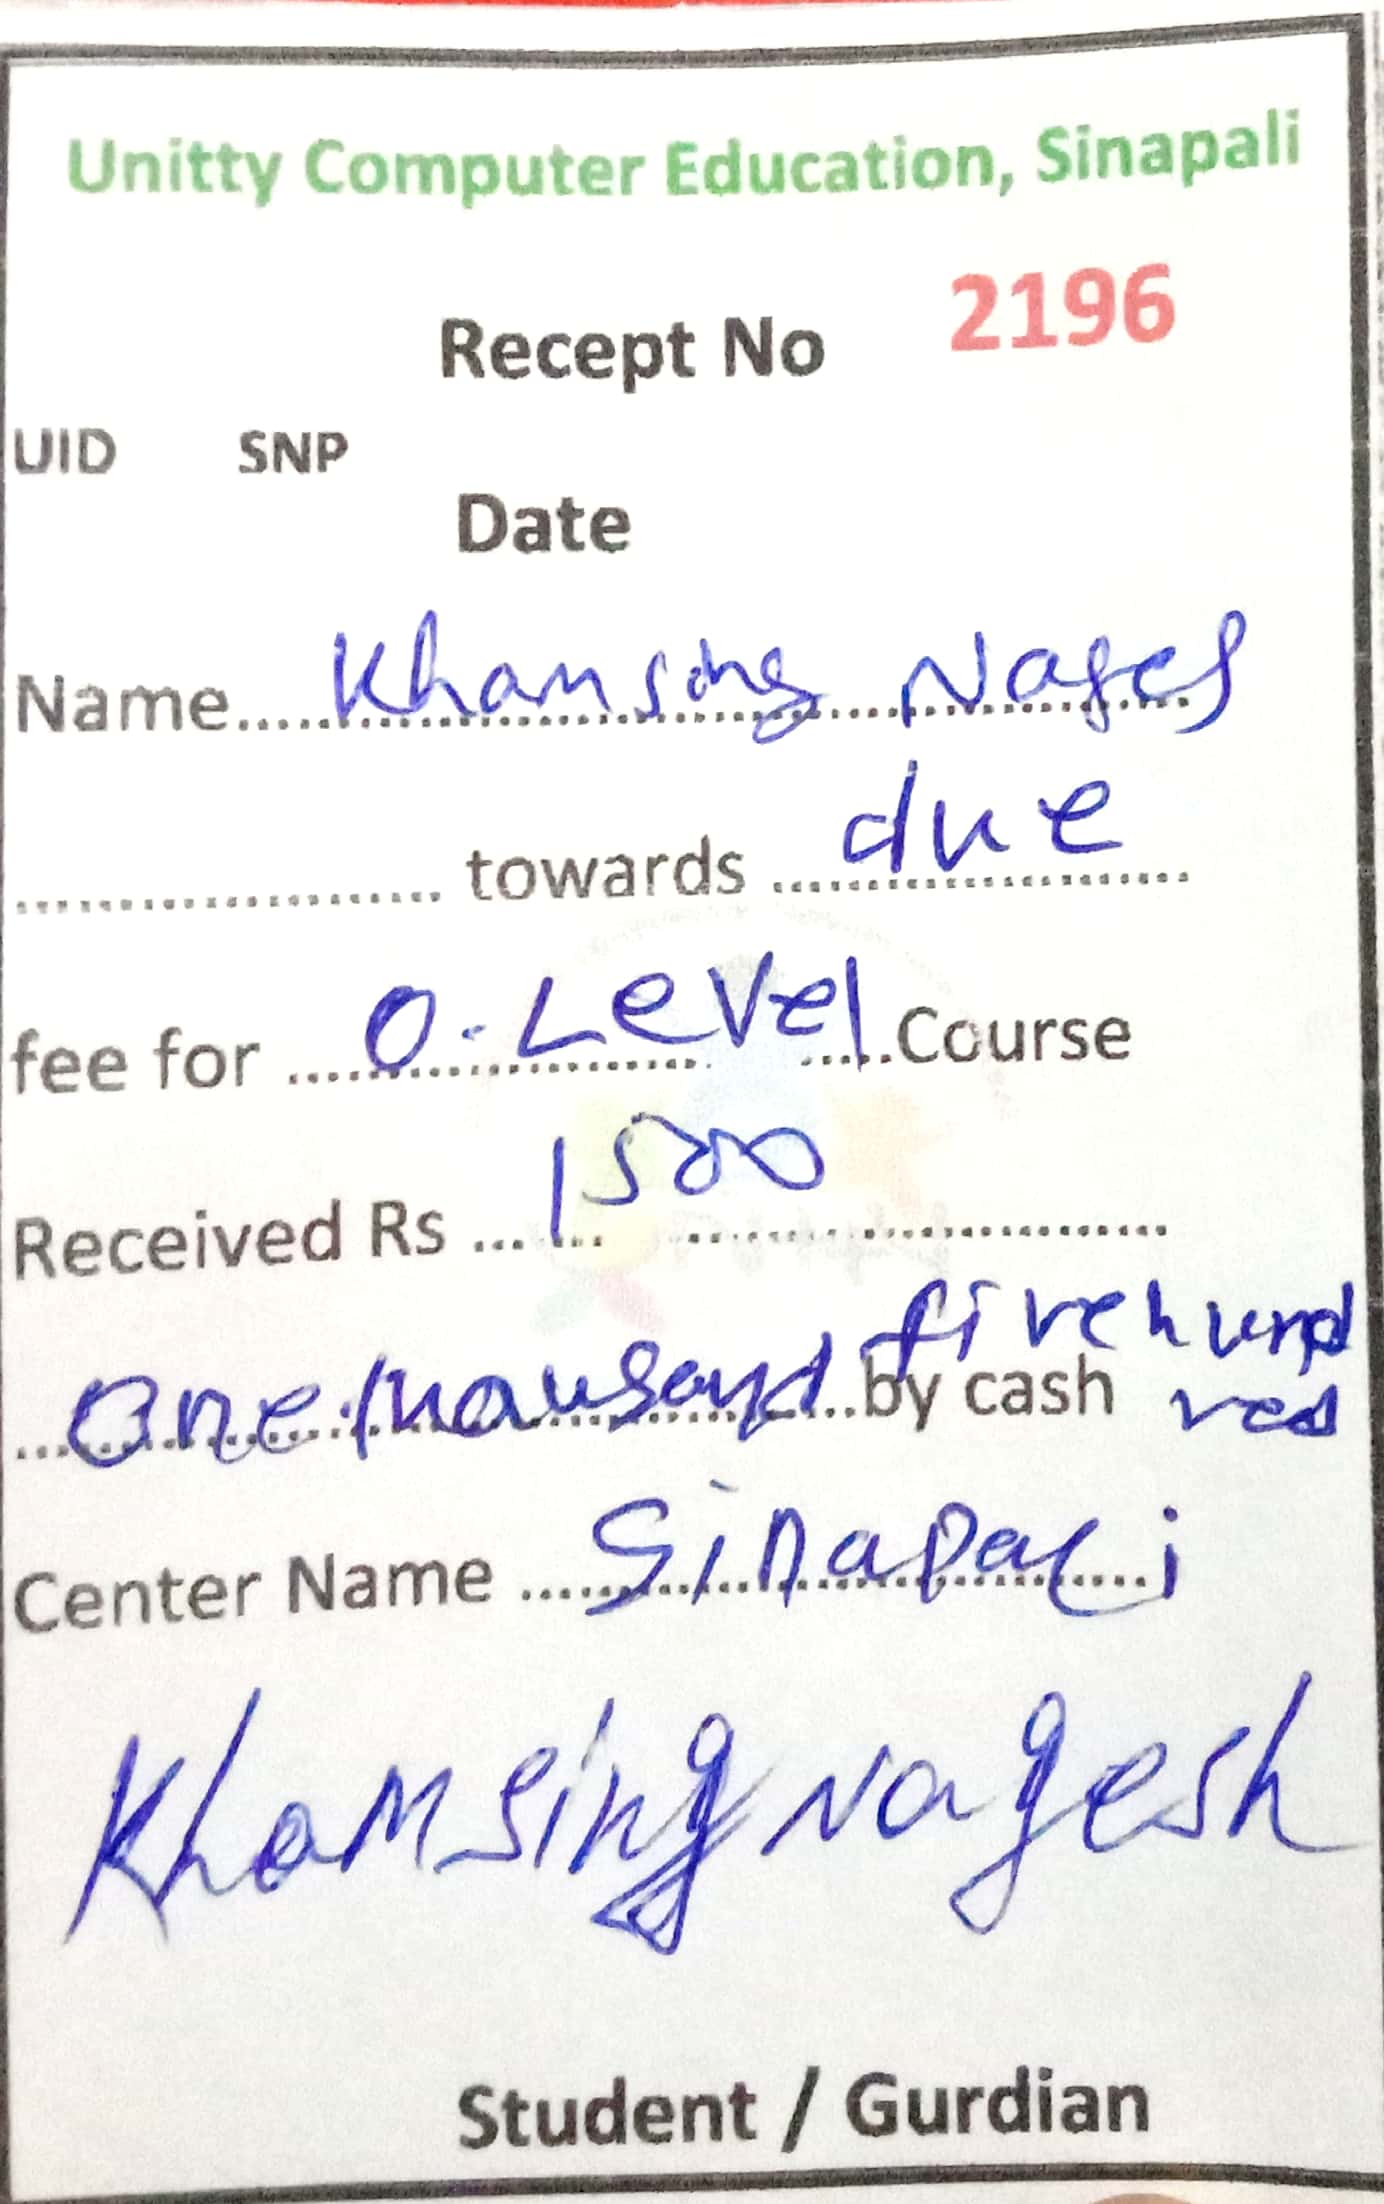 Unitty Computer Education, Sinapali
Recept No 2196
UID SNP
Date
Name.....Khamsing Nages
.................... towards ...due
fee for ...O-Level...Course
Received Rs ...1500....................
...One thousand...by cash five hund
red
Center Name ...Sinapali
Khamsing Nagesh
Student / Gurdian